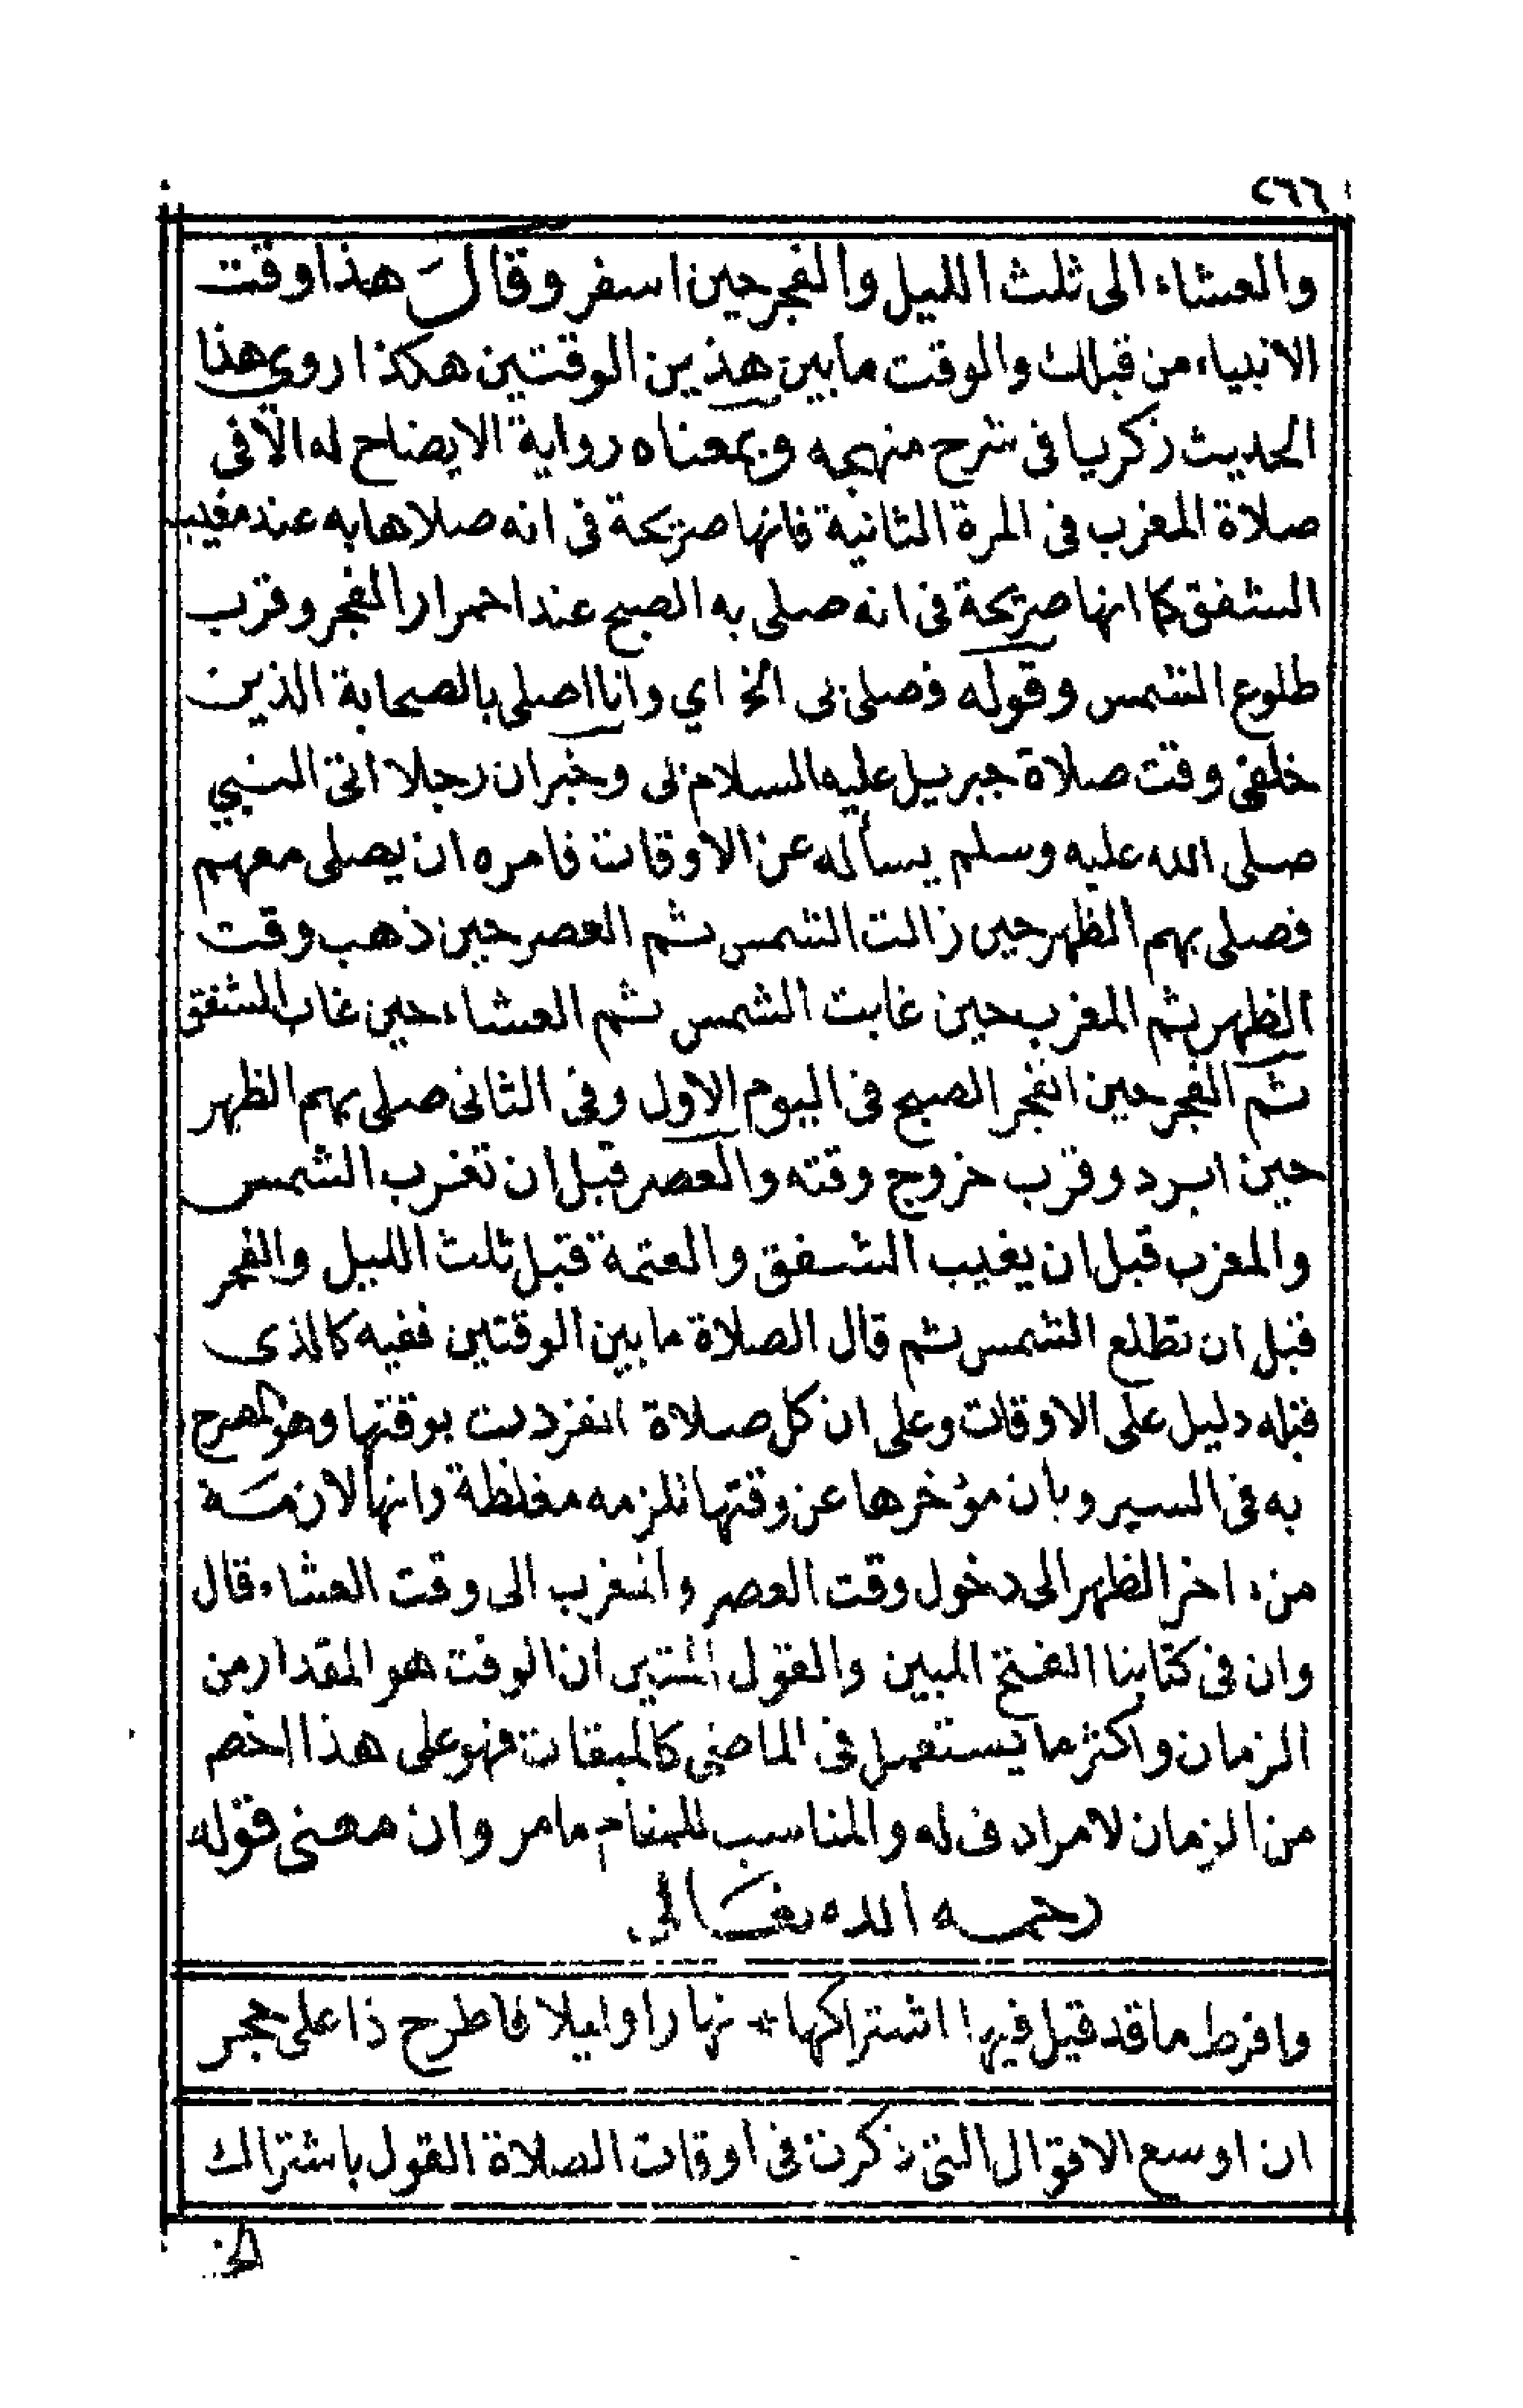 ٢٦٦
والعشاء الى ثلث الليل والفجر حين اسفر وقال هذا وقت
الانبياء من قبلك والوقت ما بين هذين الوقتين هكذا روى هذا
الحديث زكريا فى شرح منهجه وبمعناه رواية الايضاح له الا فى
صلاة المغرب فى المرة الثانية فانها صريحة فى انه صلاها به عند مغيب
الشفق كما انها صريحة فى انه صلى به الصبح عند احمرار الفجر وقرب
طلوع الشمس وقوله فصلى بى الخ اي وانا اصلى بالصحابة الذين
خلفى وقت صلاة جبريل عليه السلام بى وخبر ان رجلا اتى النبي
صلى الله عليه وسلم يسأله عن الاوقات فامره ان يصلى معهم
فصلى بهم الظهر حين زالت الشمس ثم العصر حين ذهب وقت
الظهر ثم المغرب حين غابت الشمس ثم العشاء حين غاب الشفق
ثم الفجر حين انفجر الصبح فى اليوم الاول وفى الثانى صلى بهم الظهر
حين ابرد وقرب خروج وقته والعصر قبل ان تغرب الشمس
والمغرب قبل ان يغيب الشفق والعتمة قبل ثلث الليل والفجر
قبل ان تطلع الشمس ثم قال الصلاة ما بين الوقتين ففيه كالذى
قبله دليل على الاوقات وعلى ان كل صلاة انفردت بوقتها وهو المصرح
به فى السير وبان مؤخرها عن وقتها تلزمه مغلظة وانها لازمة
من اخر الظهر الى دخول وقت العصر والمغرب الى وقت العشاء قال
وان فى كتابنا الفتح المبين والقول المتين ان الوقت هو المقدار من
الزمان واكثر ما يستعمل فى الماضى كالميقات فهو على هذا اخص
من الزمان لا مرادف له والمناسب للمقام ما مر وان معنى قوله
رحمه الله تعالى
وافرط ما قد قيل فيها اشتراكها * نهارا وليلا فاطرح ذا على حجر
ان اوسع الاقوال التى ذكرت فى اوقات الصلاة القول باشتراك